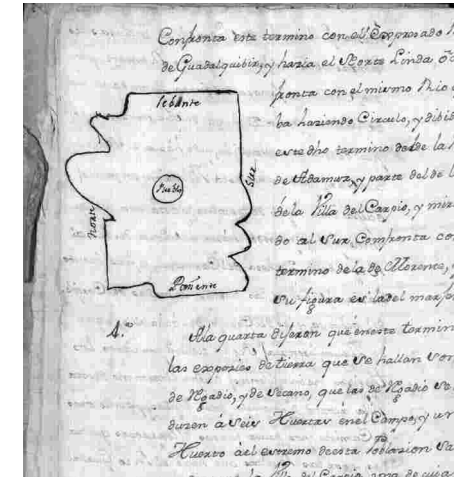 Confronta este termino con el Expresado R
de Guadalquibir, y hazia el Norte Linda
fronta con el mismo Rio
ba haziendo Circulo, y dibid
este dho termino desde la
de Adamuz, y parte del de l
de la Villa del Carpio, y mir
do al Sur, Comfronta co
termino de la de Morente,
su figura es la del marjen
Lebante
Pueblo
Sur
Norte
Poniente
4.º
A la quarta dijeron que en este termin
las expecies de tierra que se hallan son
de Regadio, y de Secano, que las de Regadio se
duzen á Seis Huertas en el Campo, y un
Huerto á el extremo de esta Poblazion